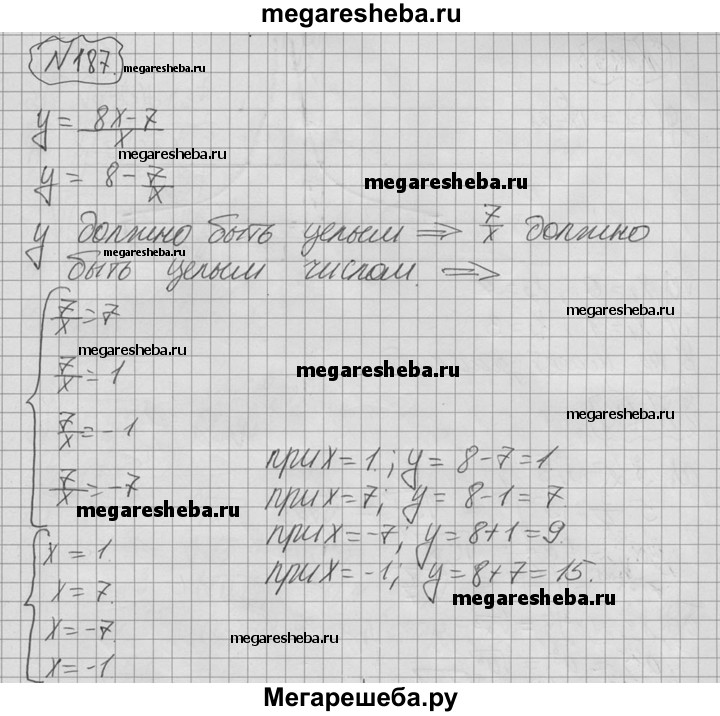 megaresheba.ru
N 187. megaresheba.ru
y = 8x-7/x
megaresheba.ru
y = 8 - 7/x
megaresheba.ru
y должно быть целым ⇒ 7/x должно
megaresheba.ru
быть целым числом. ⇒
7/x = 7
megaresheba.ru
megaresheba.ru
7/x = 1
megaresheba.ru
7/x = -1
megaresheba.ru
7/x = -7
megaresheba.ru
x = 1.
x = 7.
x = -7
x = -1
при x = 1.; y = 8-7=1.
при x = 7; y = 8-1=7.
при x = -7; y = 8+1=9.
при x = -1; y = 8+7=15.
megaresheba.ru
megaresheba.ru
Мегарешеба.ру